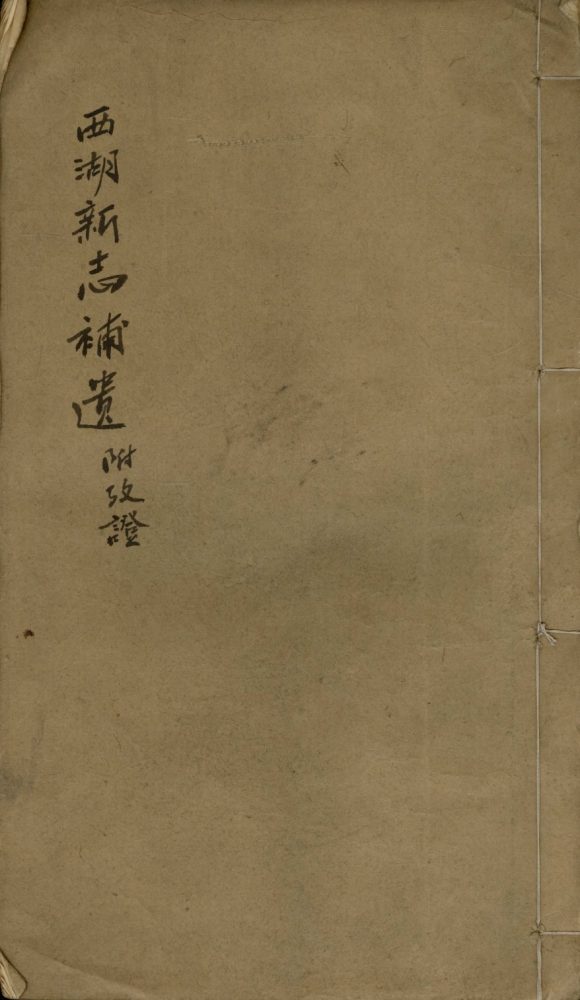 西湖新志補遺
附攷證